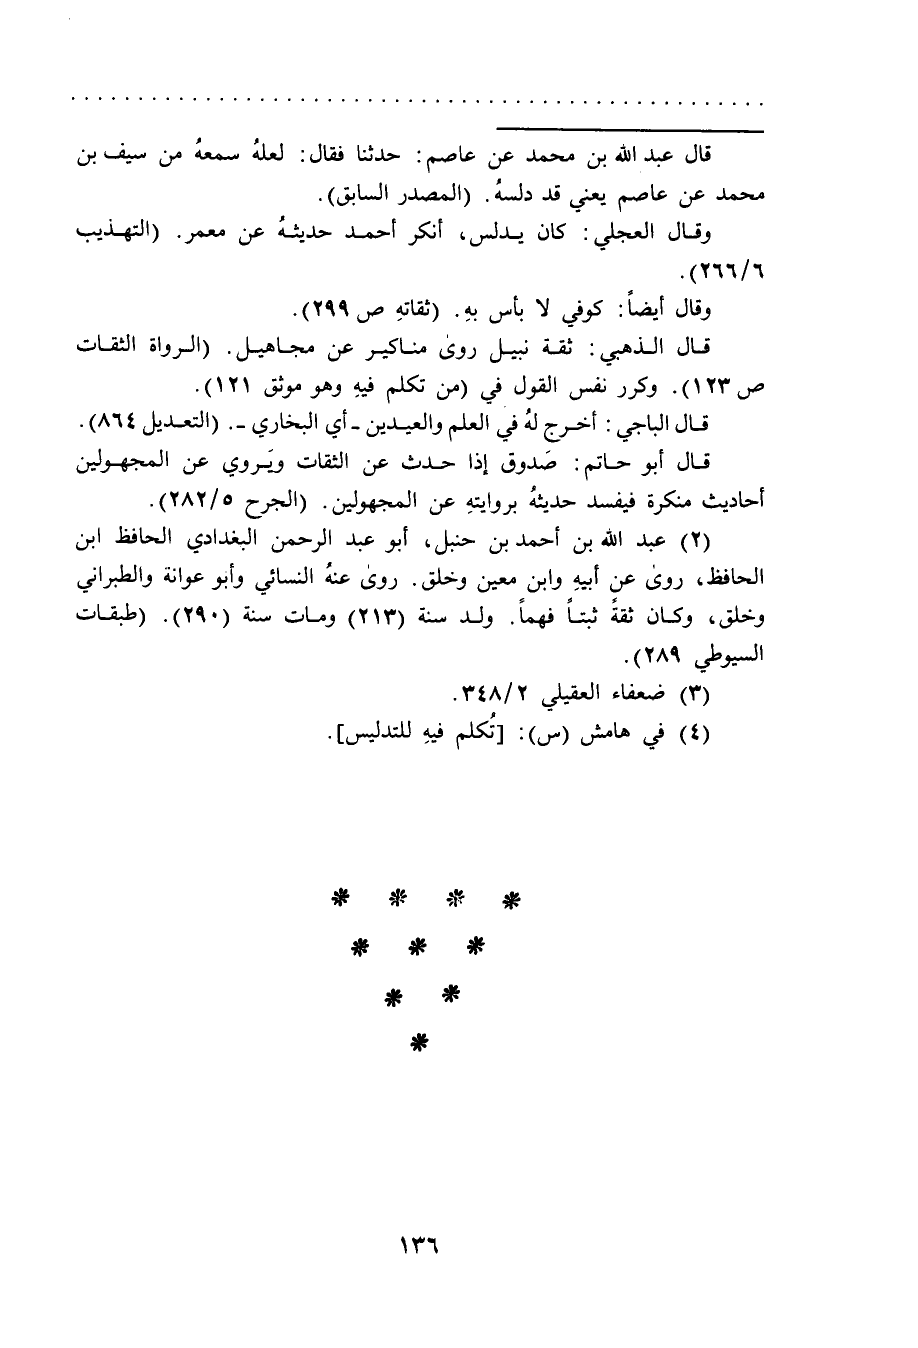 قال عبد الله بن محمد عن عاصم: حدثنا فقال: لعلهُ سمعهُ من سيف بن
محمد عن عاصم يعني قد دلسهُ. (المصدر السابق).
وقال العجلي: كان يدلس، أنكر أحمد حديثهُ عن معمر. (التهذيب
٢٦٦/٦).
وقال أيضاً: كوفي لا بأس بهِ. (ثقاتهِ ص ٢٩٩).
قال الذهبي: ثقة نبيل روىٰ مناكير عن مجاهيل. (الرواة الثقات
ص ١٢٣). وكرر نفس القول في (من تكلم فيهِ وهو موثق ١٢١).
قال الباجي: أخرج لهُ في العلم والعيدين - أي البخاري -. (التعديل ٨٦٤).
قال أبو حاتم: صَدوق إذا حدث عن الثقات ويَروي عن المجهولين
أحاديث منكرة فيفسد حديثهُ بروايتهِ عن المجهولين. (الجرح ٢٨٢/٥).
(٢) عبد الله بن أحمد بن حنبل، أبو عبد الرحمن البغدادي الحافظ ابن
الحافظ، روىٰ عن أبيهِ وابن معين وخلق. روىٰ عنهُ النسائي وأبو عوانة والطبراني
وخلق، وكان ثقةً ثبتاً فهماً. ولد سنة (٢١٣) ومات سنة (٢٩٠). (طبقات
السيوطي ٢٨٩).
(٣) ضعفاء العقيلي ٣٤٨/٢.
(٤) في هامش (س): [تُكلم فيهِ للتدليس].
* * * *
* * *
* *
*
١٣٦